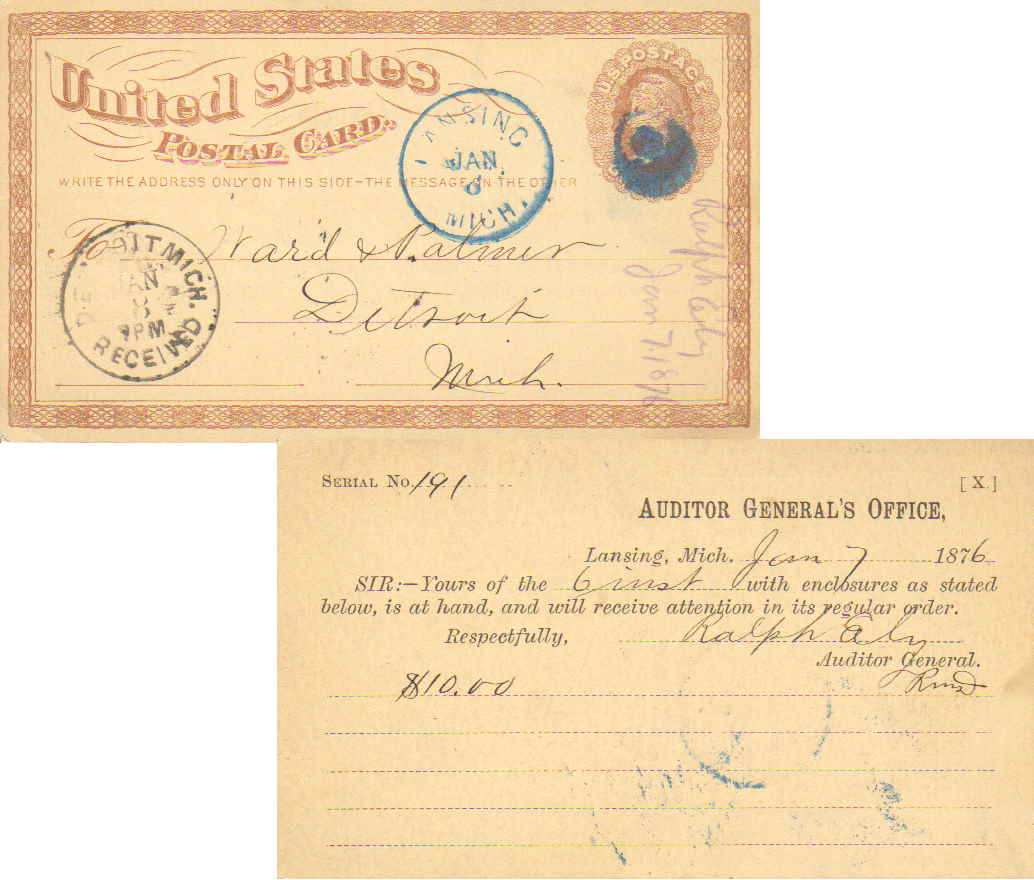 United States
POSTAL CARD.
U.S. POSTAGE
WRITE THE ADDRESS ONLY ON THIS SIDE-THE MESSAGE ON THE OTHER
LANSING
JAN.
8
MICH.
To Ward & Palmer
Detroit
Mich.
DETROIT MICH.
JAN
8
PM
RECEIVED
Ralph Ely
Jan 7. 1876
SERIAL No. 191
[X.]
AUDITOR GENERAL'S OFFICE,
Lansing, Mich. Jan 7 1876
SIR:—Yours of the 6 inst with enclosures as stated
below, is at hand, and will receive attention in its regular order.
Respectfully, Ralph Ely
Auditor General.
$10.00